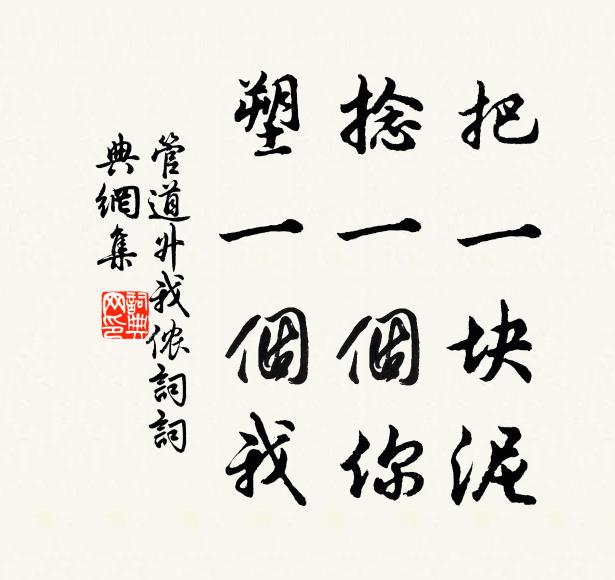 把一块泥
捻一個你
塑一個我
管道升我侬詞詞
典網集
詞典网印